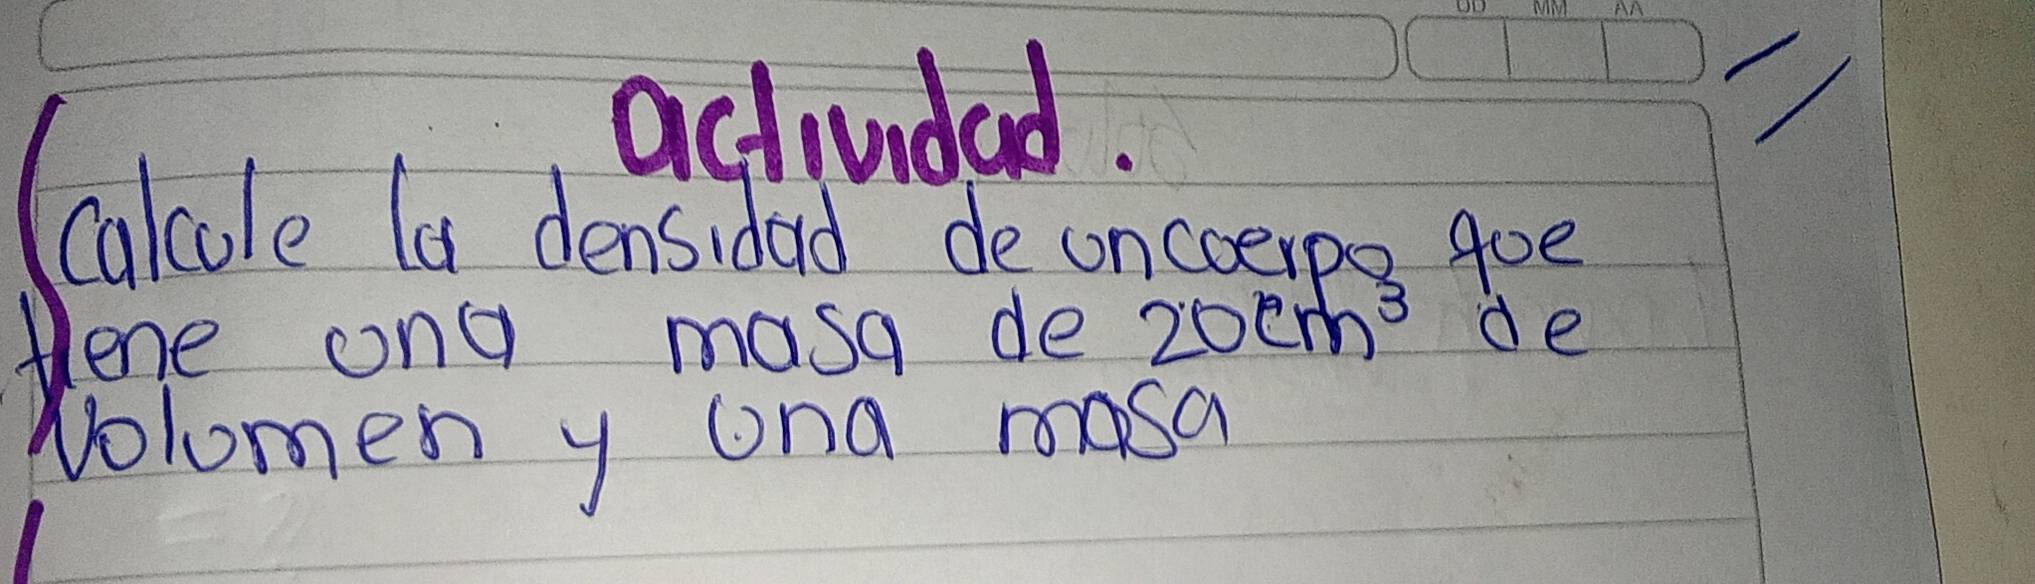 DD MM AA
actividad.
Calcule la densidad de un cuerpo que
tiene una masa de 20cm³ de
Volumen y una masa